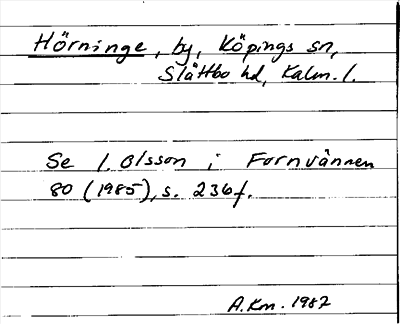 Hörninge, by, Köpings sn,
Slättbo hd, Kalm. l.
Se I. Olsson i Fornvännen
80 (1985), s. 236f.
A.Km. 1987